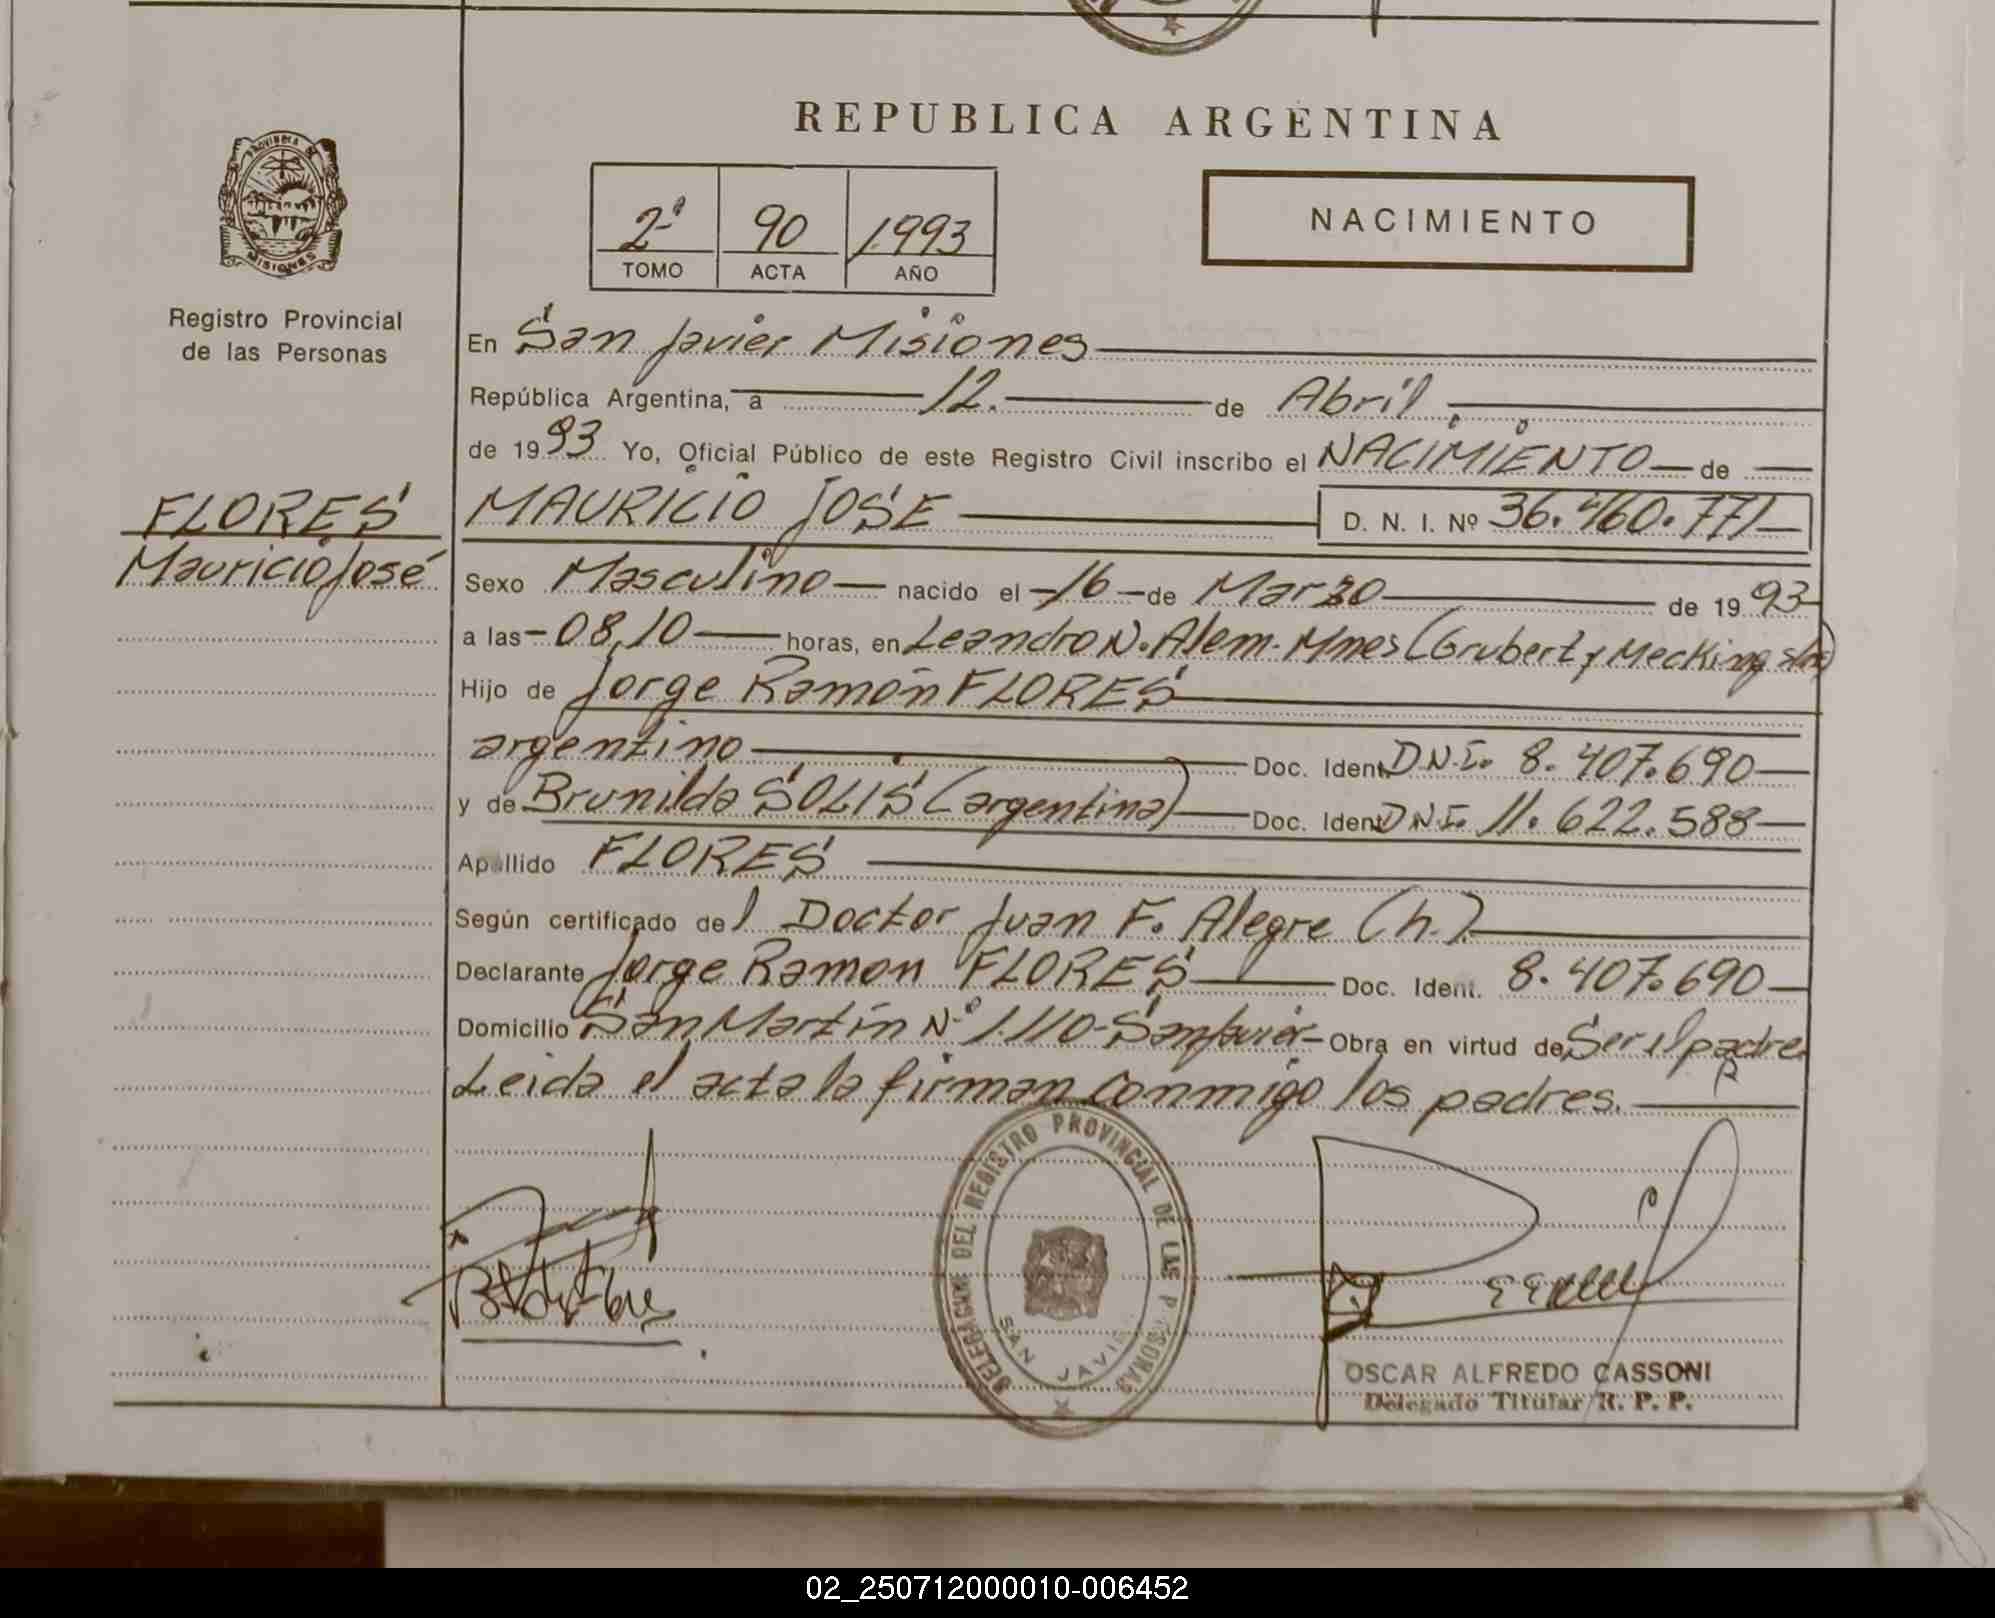 REPUBLICA ARGENTINA
PROVINCIA DE
MISIONES
Registro Provincial
de las Personas
2º 90 1.993
TOMO ACTA AÑO
NACIMIENTO
En San Javier Misiones
República Argentina, a 12. de Abril.
de 1993 Yo, Oficial Público de este Registro Civil inscribo el NACIMIENTO de
FLORES
Mauricio José
MAURICIO JOSE D. N. I. Nº 36.460.771
Sexo Masculino nacido el 16 de Marzo de 1993
a las 08,10 horas, en Leandro N. Alem. Mnes (Grubert y Mecking s/n)
Hijo de Jorge Ramón FLORES
argentino Doc. Ident. D.N.I. 8.407.690
y de Brunilda SOLIS (argentina) Doc. Ident. D.N.I. 11.622.588
Apellido FLORES
Según certificado del Doctor Juan F. Alegre (h.)
Declarante Jorge Ramon FLORES Doc. Ident. 8.407.690
Domicilio San Martín Nº 1.110- San Javier- Obra en virtud de Ser el padre
Leida el acta la firman conmigo los padres.
DELEGACION DEL REGISTRO PROVINCIAL DE LAS PERSONAS
SAN JAVIER
OSCAR ALFREDO CASSONI
Delegado Titular R. P. P.
02_250712000010-006452